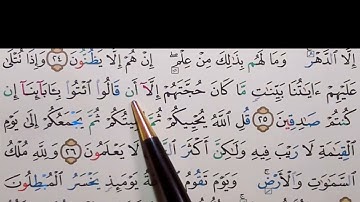 إِلَّا ٱلدَّهْرُ ۚ وَمَا لَهُم بِذَٰلِكَ مِنْ عِلْمٍ ۖ إِنْ هُمْ إِلَّا يَظُنُّونَ ٢٤ وَإِذَا تُتْلَىٰ
عَلَيْهِمْ ءَايَٰتُنَا بَيِّنَٰتٍ مَّا كَانَ حُجَّتَهُمْ إِلَّآ أَن قَالُوا۟ ٱئْتُوا۟ بِـَٔابَآئِنَآ إِن
كُنتُمْ صَٰدِقِينَ ٢٥ قُلِ ٱللَّهُ يُحْيِيكُمْ ثُمَّ يُمِيتُكُمْ ثُمَّ يَجْمَعُكُمْ إِلَىٰ يَوْمِ
ٱلْقِيَٰمَةِ لَا رَيْبَ فِيهِ وَلَٰكِنَّ أَكْثَرَ ٱلنَّاسِ لَا يَعْلَمُونَ ٢٦ وَلِلَّهِ مُلْكُ
ٱلسَّمَٰوَٰتِ وَٱلْأَرْضِ ۚ وَيَوْمَ تَقُومُ ٱلسَّاعَةُ يَوْمَئِذٍ يَخْسَرُ ٱلْمُبْطِلُونَ